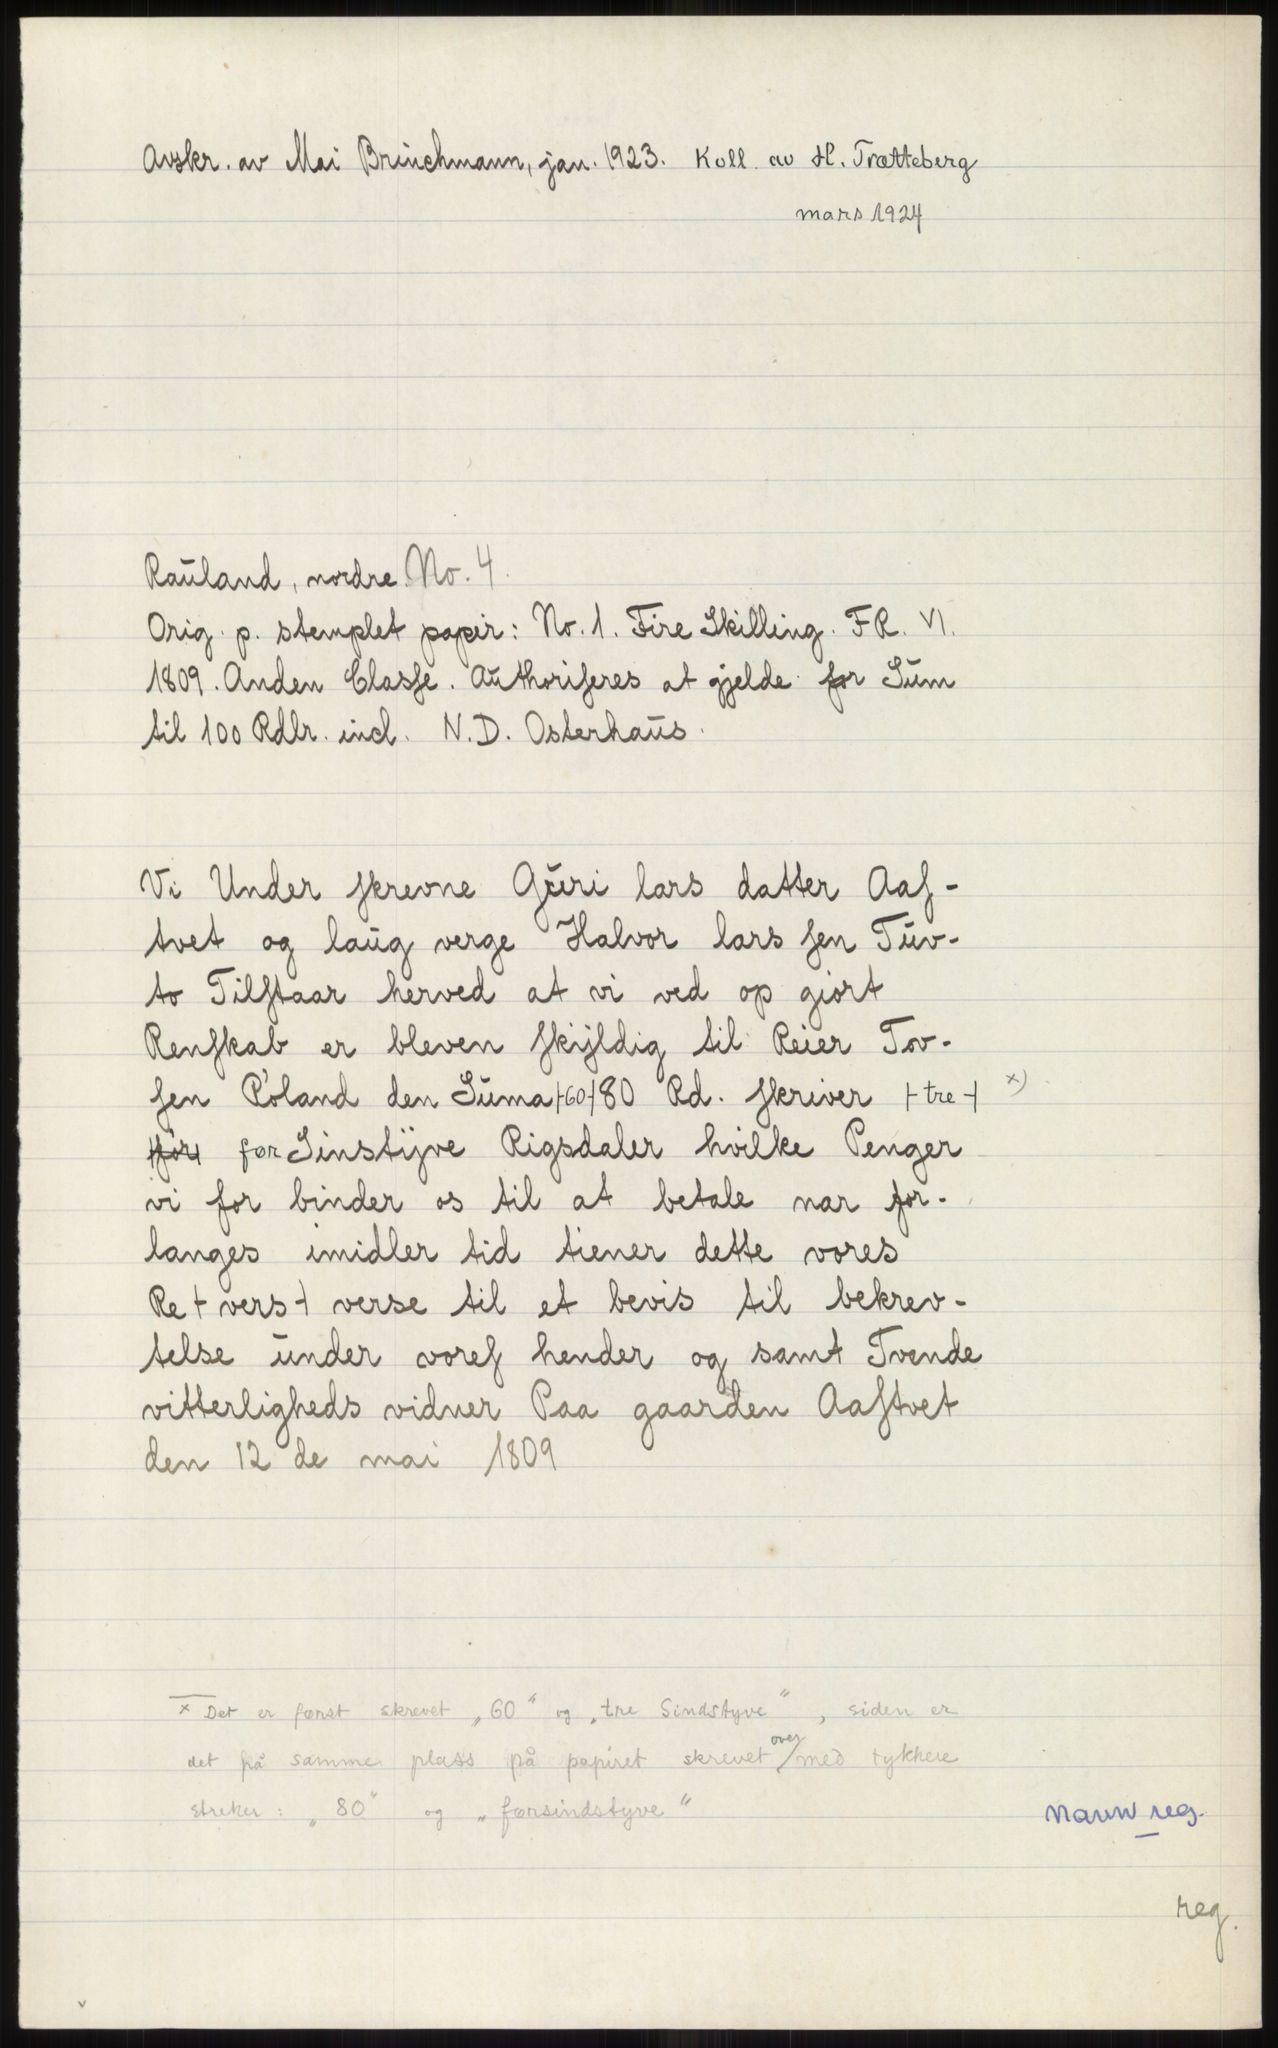 Avskr. av Mai Brinchmann, jan. 1923. Koll. av H. Trætteberg
mars 1924
Rauland, nordre No. 4.
Orig. p. stemplet papir: No. 1. Fire Skilling. FR. VI.
1809. Anden Classe. Authoriseres at gjelde for Sum
til 100 Rdlr. incl. N.D. Osterhaus.
Vi Under skrevne Guri lars datter Aas-
tvet og laug verge Halvor lars sen Tuv-
to Tilstaar herved at vi ved op giort
Renskab er bleven skyldig til Reier Tov-
sen Roland den Suma ⊢60⊣ 80 Rd. skriver ⊢tre⊣ x)
⊢för⊣ før Sinstyve Rigsdaler hvilke Penger
vi for binder os til at betale nar for-
langes imidler tid tiener dette vores
Re ⊢vers⊣ verse til et bevis til bekrev-
telse under vores hender og samt Tvende
vitterligheds vidner Paa gaarden Aastvet
den 12 de mai 1809
x Det er først skrevet „60" og „tre Sindstyve", siden er
det på samme plass på papiret skrevet over med tykkere
streker: „80" og „førsindstyve"
Navnreg.
reg.